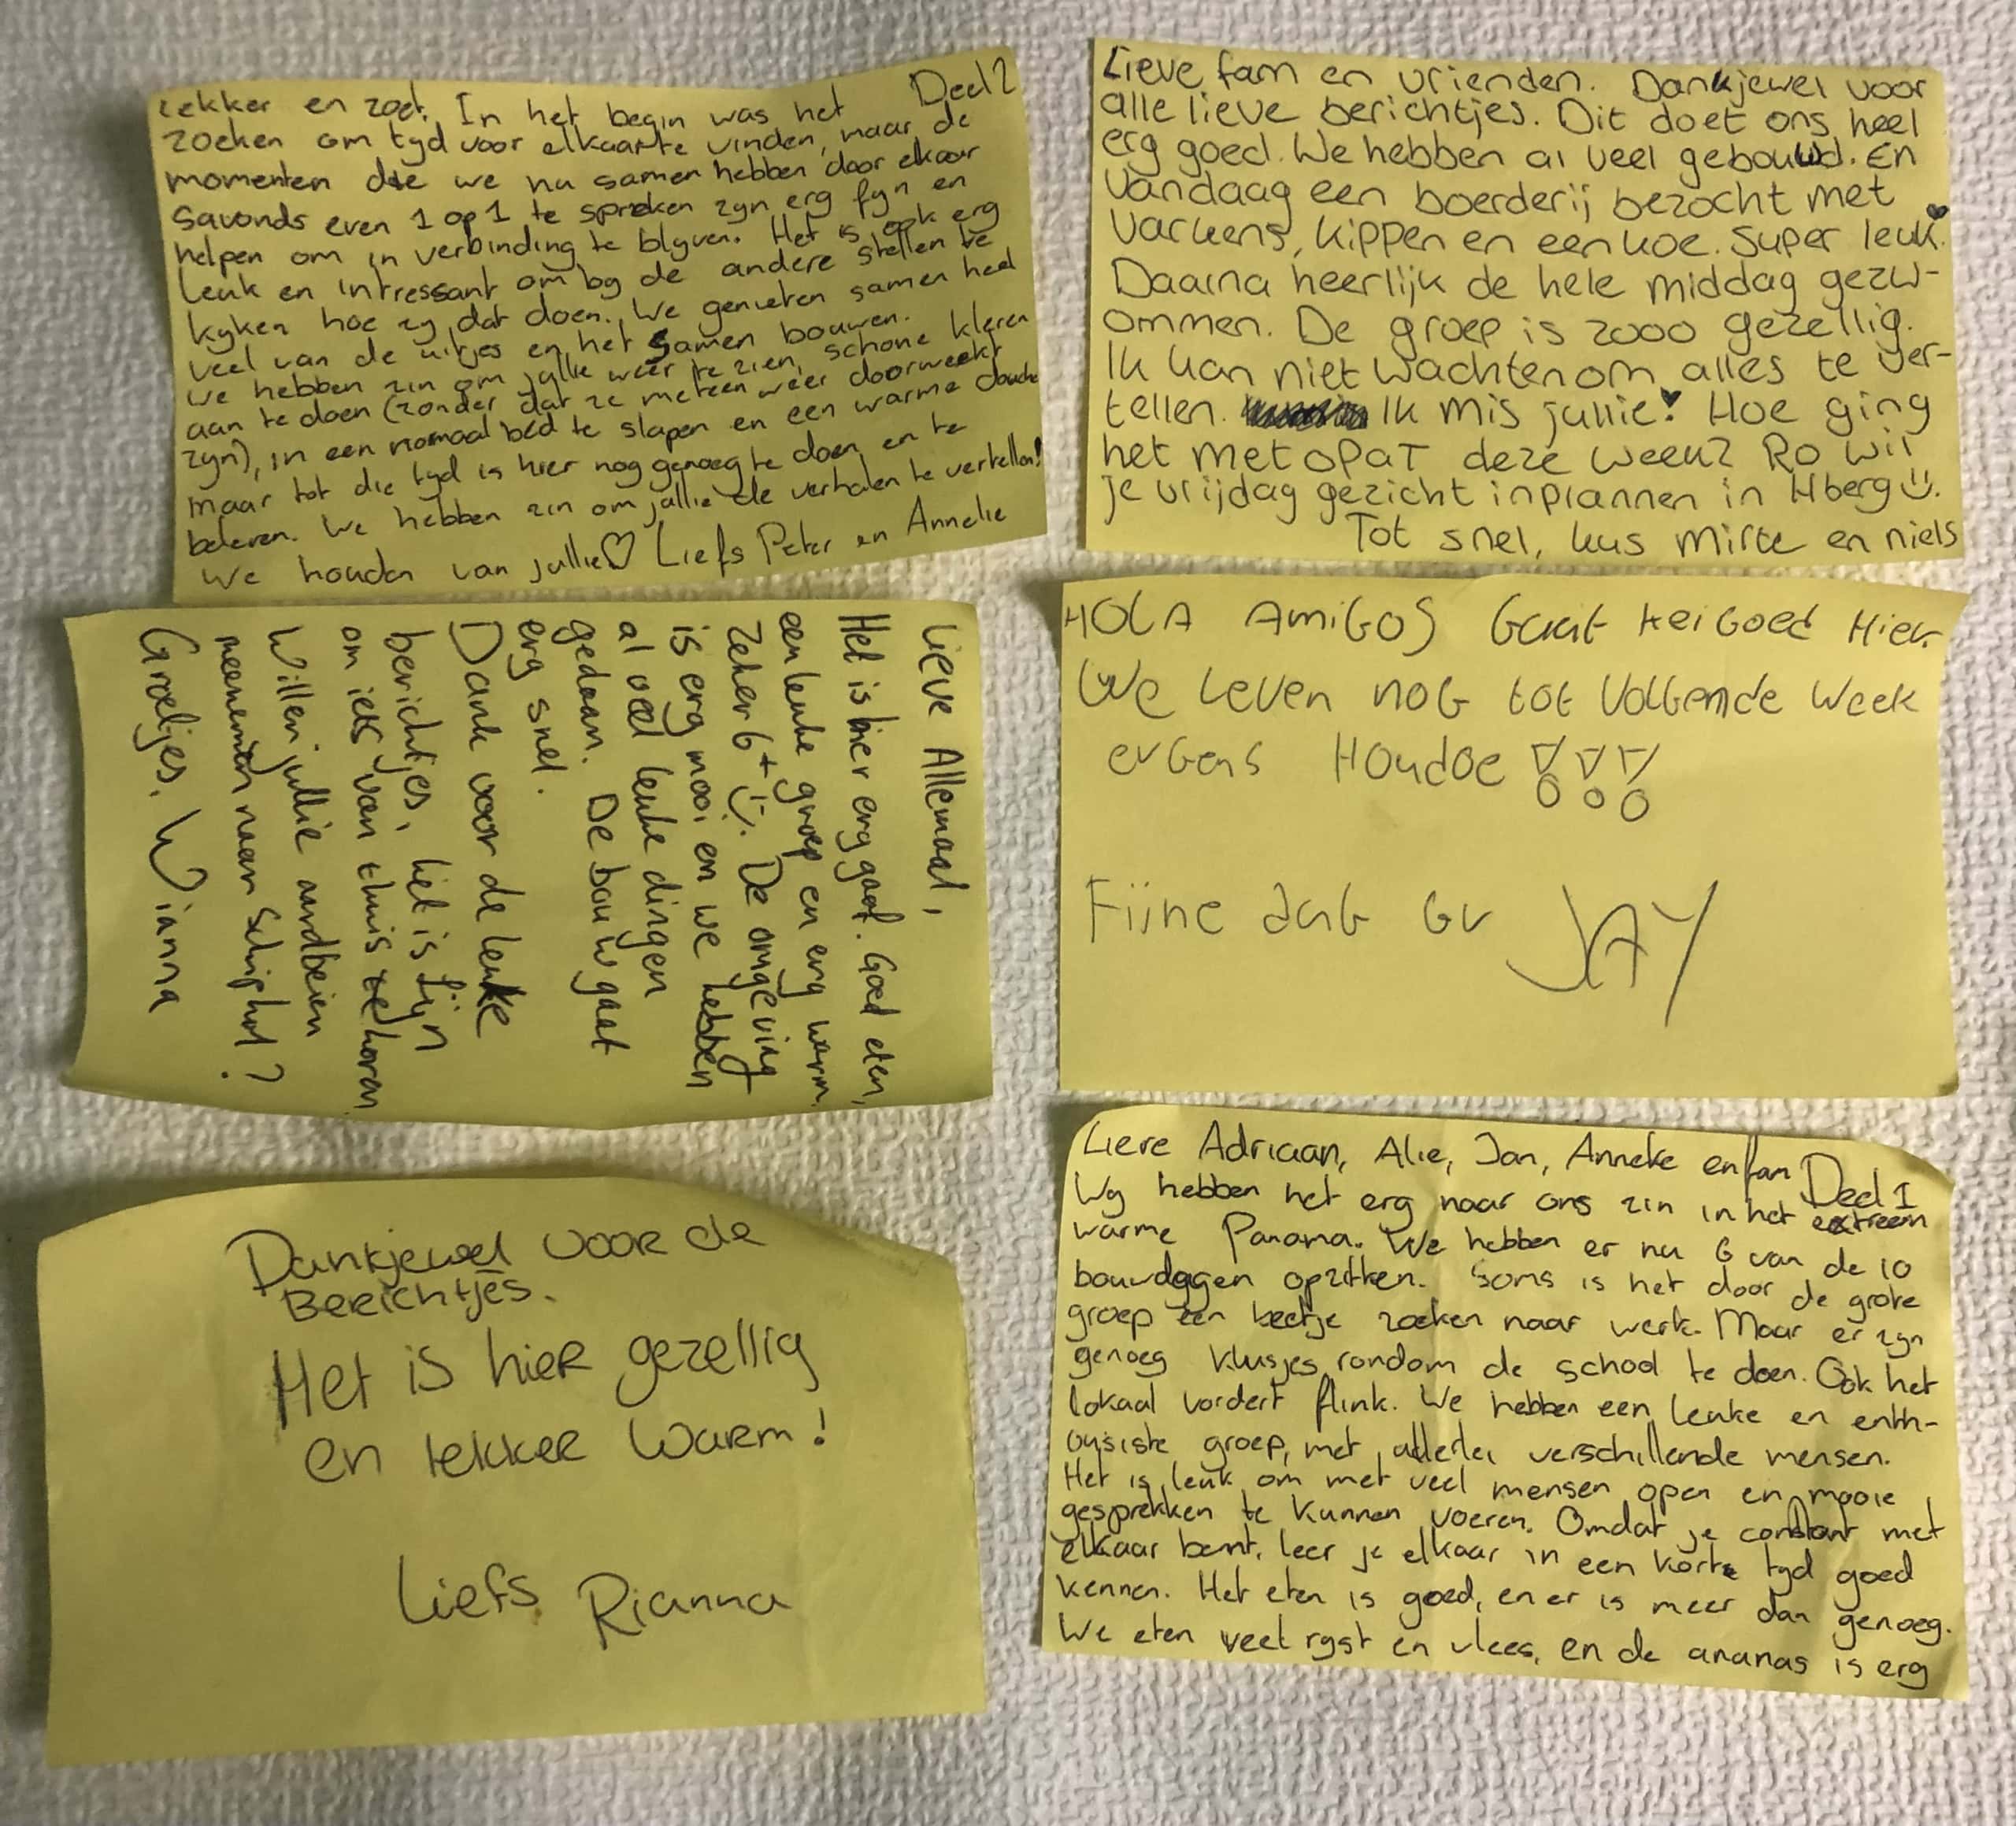 Lekker en zoet. In het begin was het Deel 2
zoeken om tyd voor elkaar te vinden, maar de
momenten die we nu samen hebben door elkaar
savonds even 1 op 1 te spreken zyn erg fyn en
helpen om in verbinding te blyven. Het is ook erg
leuk en intressant om by de andere stellen te
kyken hoe zy dat doen. We genieten samen heel
veel van de uitjes en het samen bouwen.
We hebben zin om jullie weer te zien, schone kleren
aan te doen (zonder dat ze meteen weer doorweekt
zyn), in een normaal bed te slapen en een warme douche
maar tot die tyd is hier nog genoeg te doen en te
beleven. We hebben zin om jullie de verhalen te vertellen!
We houden van jullie♡ Liefs Peter en Annelie
Lieve fam en vrienden. Dankjewel voor
alle lieve berichtjes. Dit doet ons heel
erg goed. We hebben al veel gebouwd. En
vandaag een boerderij bezocht met
varkens, kippen en een koe. Super leuk.
Daarna heerlijk de hele middag gezw-
ommen. De groep is zooo gezellig.
Ik kan niet wachten om alles te ver-
tellen. Ik mis jullie! Hoe ging
het met opa T deze week? Ro wil
je vrijdag gezicht inplannen in Hberg ☺.
Tot snel, kus Mirte en niels
Lieve Allemaal,
Het is hier erg gaaf. Goed eten,
een leuke groep en erg warm.
Zeker 6+ ☺. De omgeving
is erg mooi en we hebben
al veel leuke dingen
gedaan. De bouw gaat
erg snel.
Dank voor de leuke
berichtjes, het is fijn
om iets van thuis te horen.
Willen jullie aardbeien
meenemen naar Schiphol?
Groetjes, Wianna
HOLA AMIGOS Gaat Kei Goed Hier
We Leven noG tot VolGende Week
erGens Houdoe !!!
Fijne daG Gr JAY
Dankjewel voor de
Berichtjes.
Het is hier gezellig
en lekker warm!
Liefs Rianna
Lieve Adriaan, Alie, Jan, Anneke en fam Deel 1
Wy hebben het erg naar ons zin in het extreem
warme Panama. We hebben er nu 6 van de 10
bouwdagen opzitten. Soms is het door de grote
groep een beetje zoeken naar werk. Maar er zyn
genoeg klusjes rondom de school te doen. Ook het
lokaal vordert flink. We hebben een leuke en enth-
ousiste groep, met allerlei verschillende mensen.
Het is leuk om met veel mensen open en mooie
gesprekken te kunnen voeren. Omdat je constant met
elkaar bent, leer je elkaar in een korte tyd goed
kennen. Het eten is goed, en er is meer dan genoeg.
We eten veel ryst en vlees, en de ananas is erg